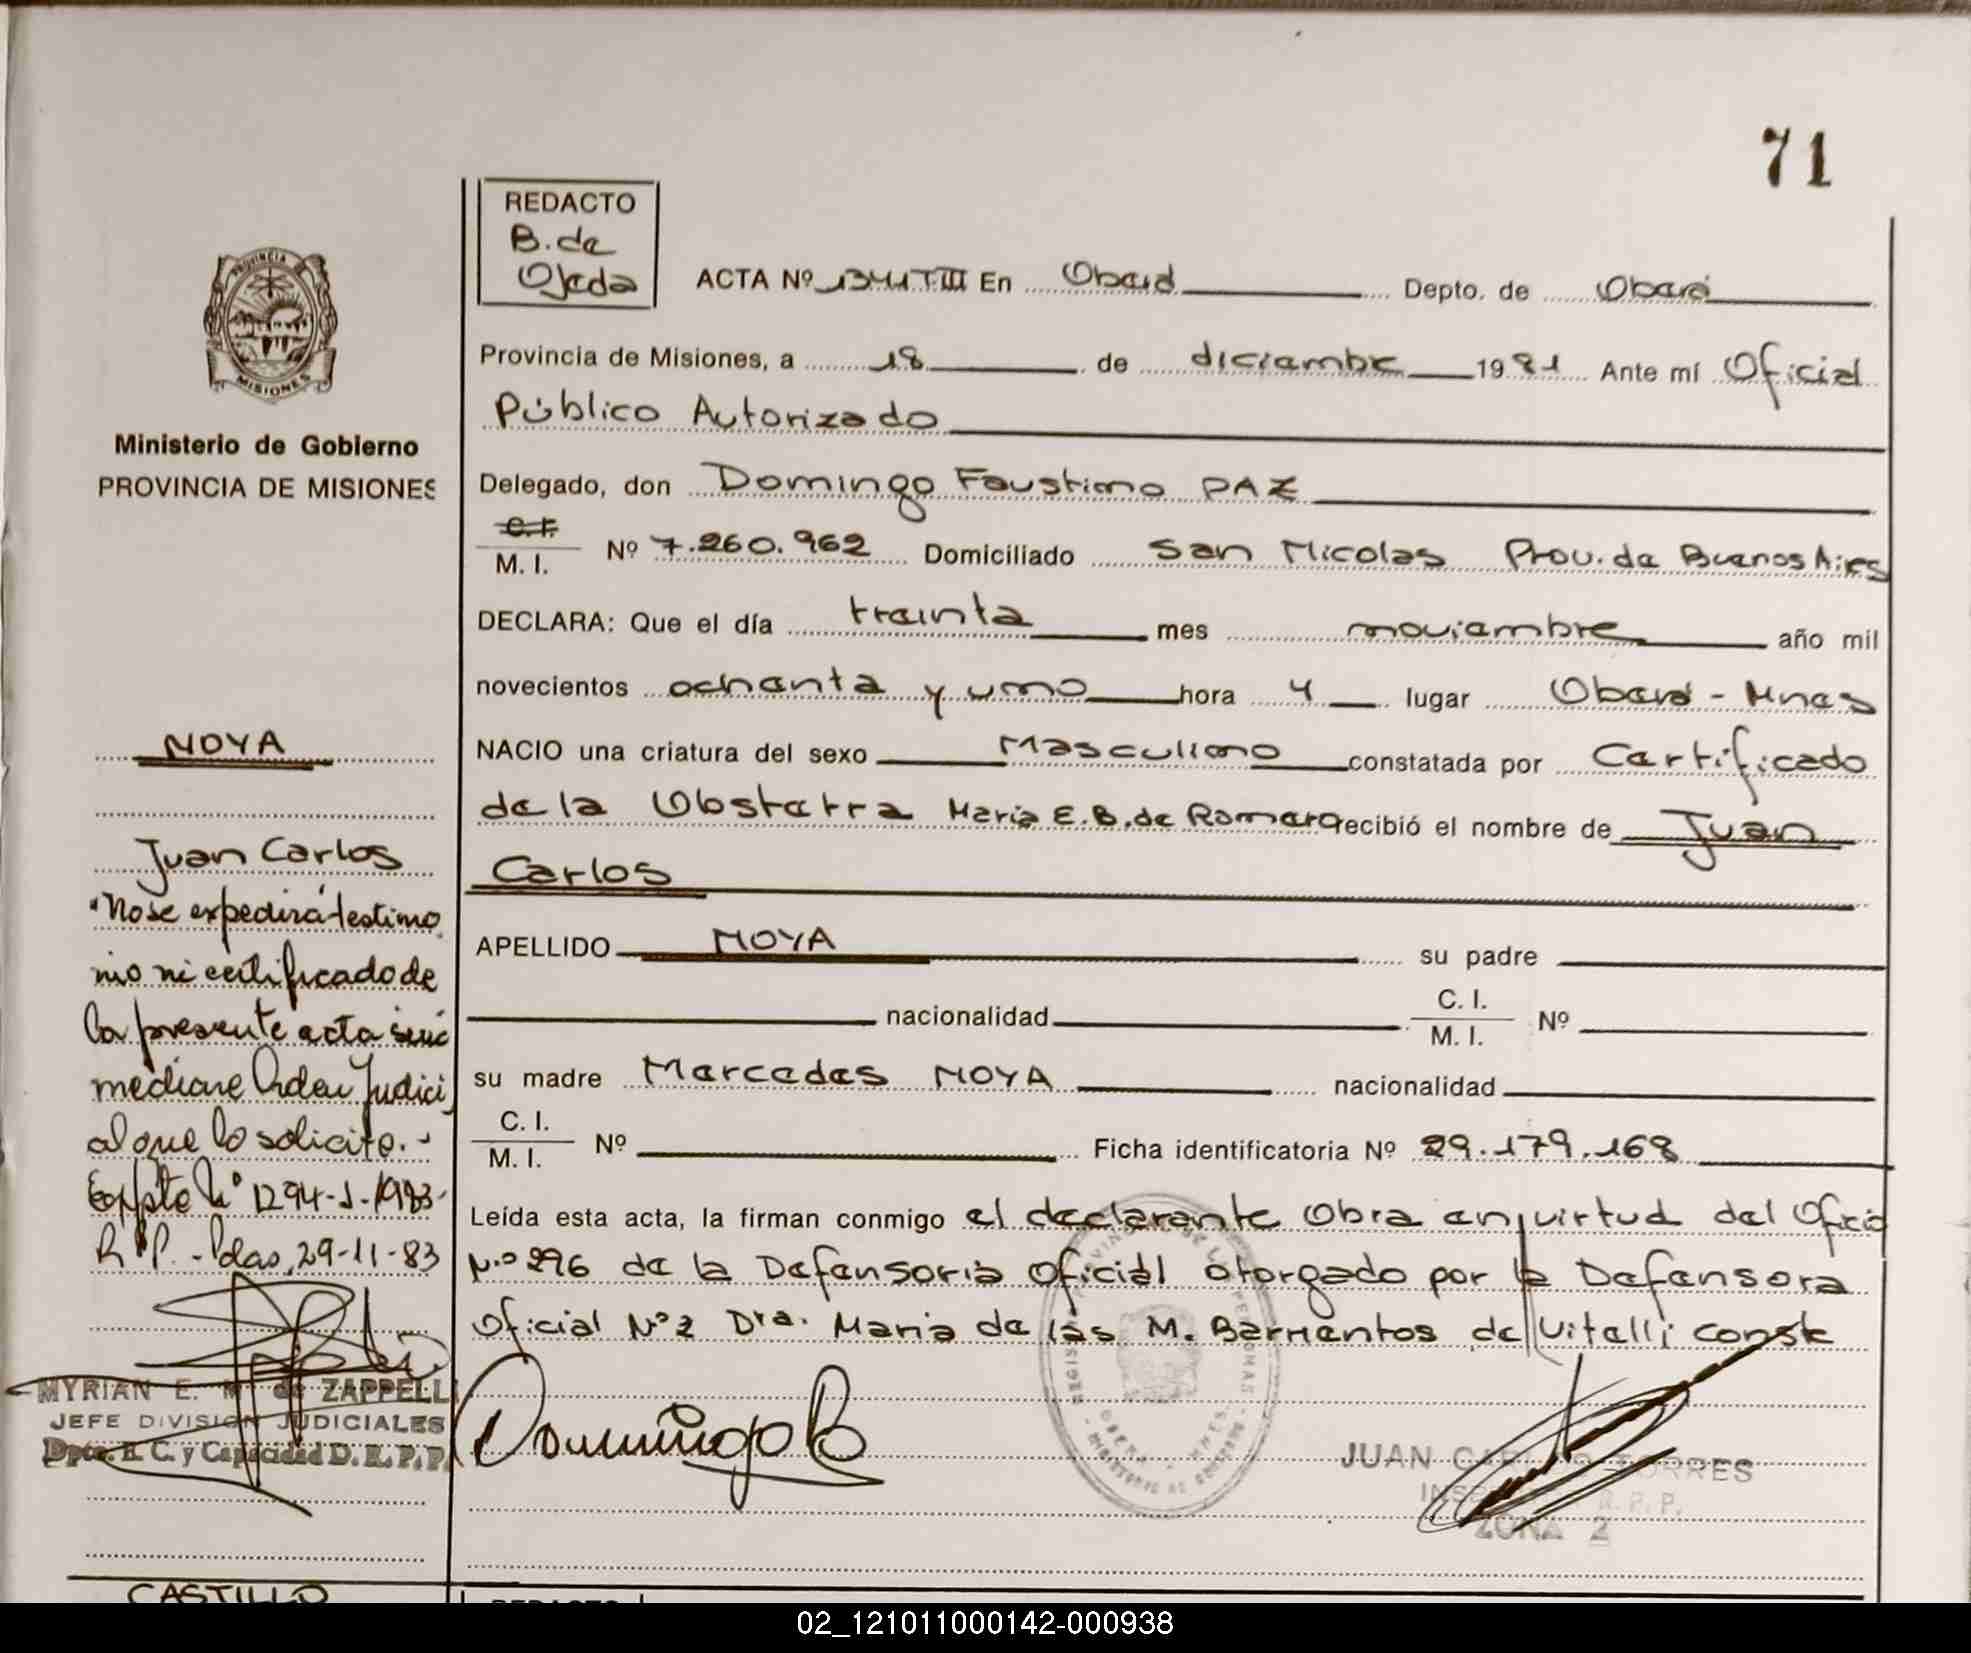 71
REDACTO
B. de
Ojeda
ACTA Nº 1341 T III En Oberá Depto. de Oberá
PROVINCIA DE
MISIONES
Ministerio de Gobierno
PROVINCIA DE MISIONES
Provincia de Misiones, a 18 de diciembre 1981 Ante mí Oficial
Público Autorizado
Delegado, don Domingo Faustino PAZ
C. I.
M. I. Nº 7.260.962 Domiciliado San Nicolas Prov. de Buenos Aires
DECLARA: Que el día treinta mes noviembre año mil
novecientos ochenta y uno hora 4 lugar Oberá - Mnes
NACIO una criatura del sexo Masculino constatada por Certificado
de la Obstetra Maria E. B. de Romero recibió el nombre de Juan
Carlos
APELLIDO NOYA su padre
nacionalidad C. I. M. I. Nº
su madre Mercedes NOYA nacionalidad
C. I.
M. I. Nº Ficha identificatoria Nº 29.179.168
Leída esta acta, la firman conmigo el declarante Obra en virtud del Oficio
N.º 296 de la Defensoria Oficial otorgado por la Defensora
Oficial Nº 2 Dra. Maria de las M. Barrientos de Vitelli conste
NOYA
Juan Carlos
"No se expedirá testimo
nio ni certificado de
la presente acta sino
mediare Orden Judici
al que lo solicite.-
Expte Nº 1294-J-1983-
R P P.- Pdas, 29-11-83
MYRIAN E. M. de ZAPPELLI
JEFE DIVISION JUDICIALES
Dpto. E. C. y Capacidad D. R. P. P.
Domingo
JUAN CARLOS TORRES
INSPECTOR R. P. P.
ZONA 2
CASTILLO
REDACTO
02_121011000142-000938